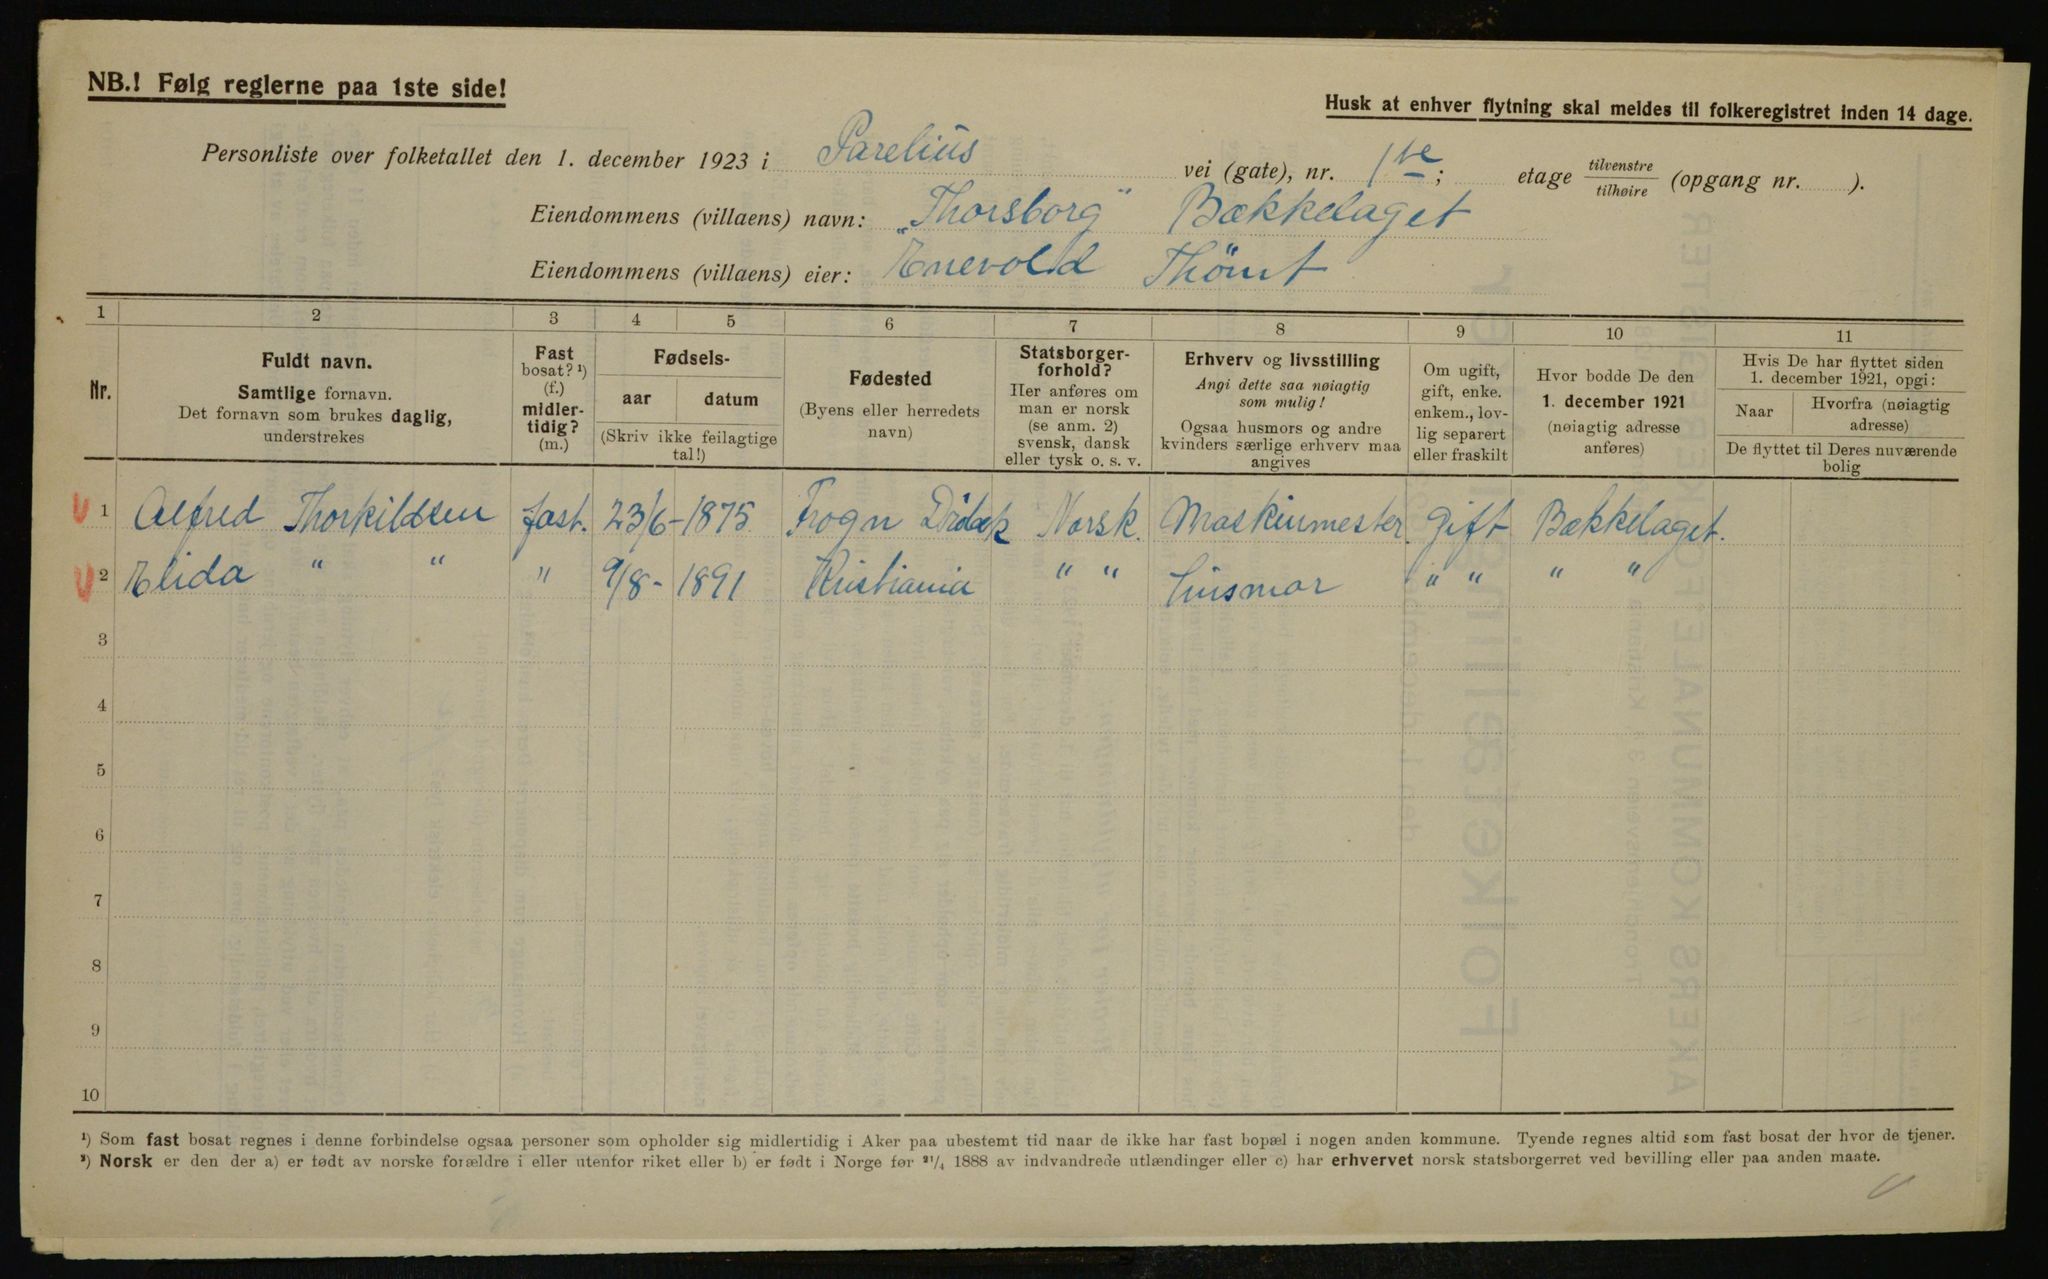 NB.! Følg reglerne paa 1ste side!
Husk at enhver flytning skal meldes til folkeregistret inden 14 dage.
Personliste over folketallet den 1. december 1923 i Parelius vei (gate), nr. 1ste; etage tilvenstre tilhøire (opgang nr. ).
Eiendommens (villaens) navn: „Thorsborg" Bækkelaget
Eiendommens (villaens) eier: Enevold Thömt
1 2 3 4 5 6 7 8 9 10 11
Nr.
Fuldt navn.
Samtlige fornavn.
Det fornavn som brukes daglig,
understrekes
Fast
bosat? ¹)
(f.)
midler-
tidig?
(m.)
Fødsels-
aar datum
(Skriv ikke feilagtige
tal!)
Fødested
(Byens eller herredets
navn)
Statsborger-
forhold?
Her anføres om
man er norsk
(se anm. 2)
svensk, dansk
eller tysk o. s. v.
Erhverv og livsstilling
Angi dette saa nøiagtig
som mulig!
Ogsaa husmors og andre
kvinders særlige erhverv maa
angives
Om ugift,
gift, enke.
enkem., lov-
lig separert
eller fraskilt
Hvor bodde De den
1. december 1921
(nøiagtig adresse
anføres)
Hvis De har flyttet siden
1. december 1921, opgi:
Naar
Hvorfra (nøiagtig
adresse)
De flyttet til Deres nuværende
bolig
1 Alfred Thorkildsen fast. 23/6 - 1875 Frogn Dröbak Norsk. Maskinmester. gift Bækkelaget.
2 Elida " " " 9/8 - 1891 Kristiania " " husmor " " " "
3
4
5
6
7
8
9
10
¹) Som fast bosat regnes i denne forbindelse ogsaa personer som opholder sig midlertidig i Aker paa ubestemt tid naar de ikke har fast bopæl i nogen anden kommune. Tyende regnes altid som fast bosat der hvor de tjener.
²) Norsk er den der a) er født av norske forældre i eller utenfor riket eller b) er født i Norge før 21/4 1888 av indvandrede utlændinger eller c) har erhvervet norsk statsborgerret ved bevilling eller paa anden maate.